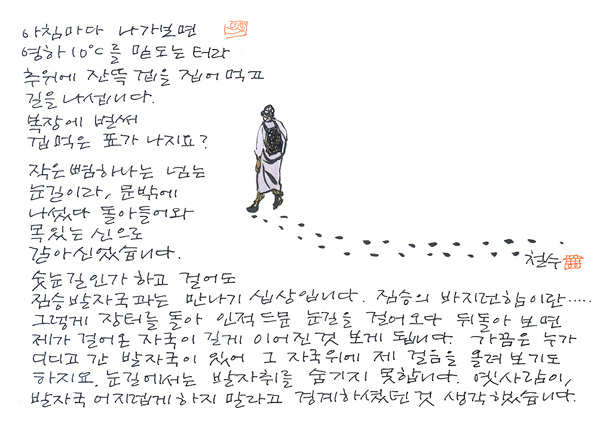 아침마다 나가보면
영하 10°C를 맡도는 터라
추위에 잔뜩 겁을 집어 먹고
길을 나섭니다.
복장에 벌써
겁먹은 표가 나지요?
작은 뼘하나는 넘는
눈길이라, 문밖에
나섰다 돌아들어와
목있는 신으로
갈아신었습니다.
숫눈길인가 하고 걸어도
짐승발자국과는 만나기 십상입니다. 짐승의 바지런함이란.....
그렇게 장터를 돌아 인적드문 눈길을 걸어오다 뒤돌아 보면
제가 걸어온 자국이 길게 이어진 것 보게 됩니다. 가끔은 누가
디디고 간 발자국이 있어 그 자국위에 제 걸음을 올려 보기도
하지요. 눈길에서는 발자취를 숨기지 못합니다. 옛사람이,
발자국 어지럽게 하지 말라고 경계하셨던 것 생각했습니다.
철수